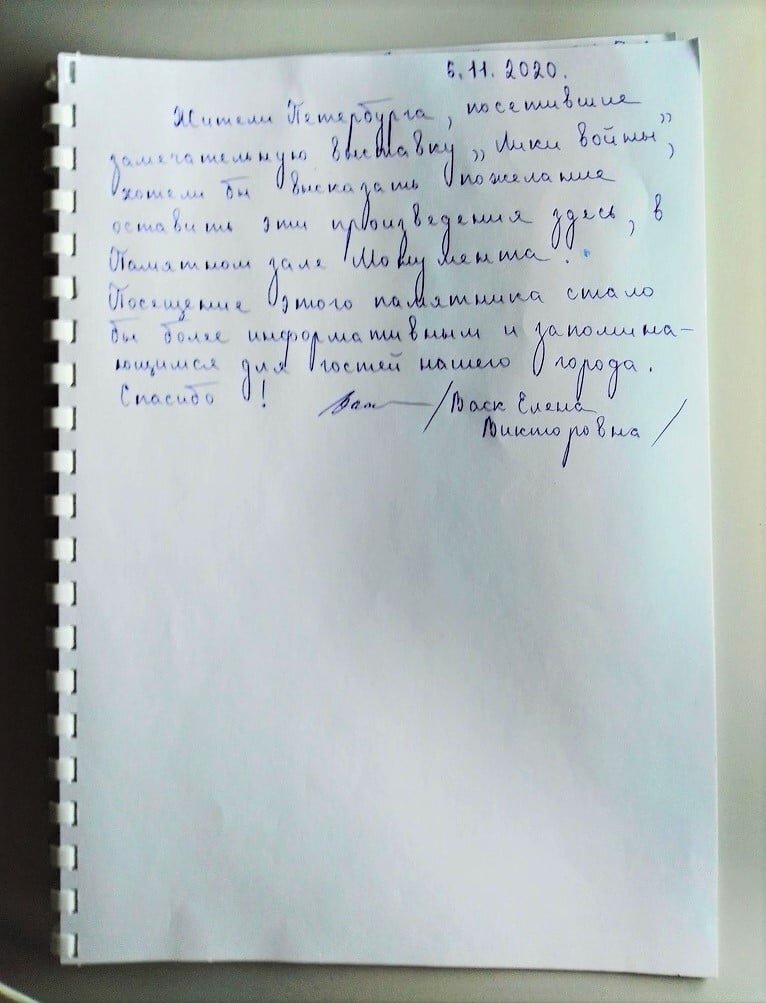 5.11.2020.
Жители Петербурга, посетившие
замечательную выставку „Лики войны”,
хотели бы высказать пожелание
оставить эти произведения здесь, в
Памятном зале Монумента.
Посещение этого памятника стало
бы более информативным и запомина-
ющимся для гостей нашего города.
Спасибо! /Васк Елена
Викторовна/